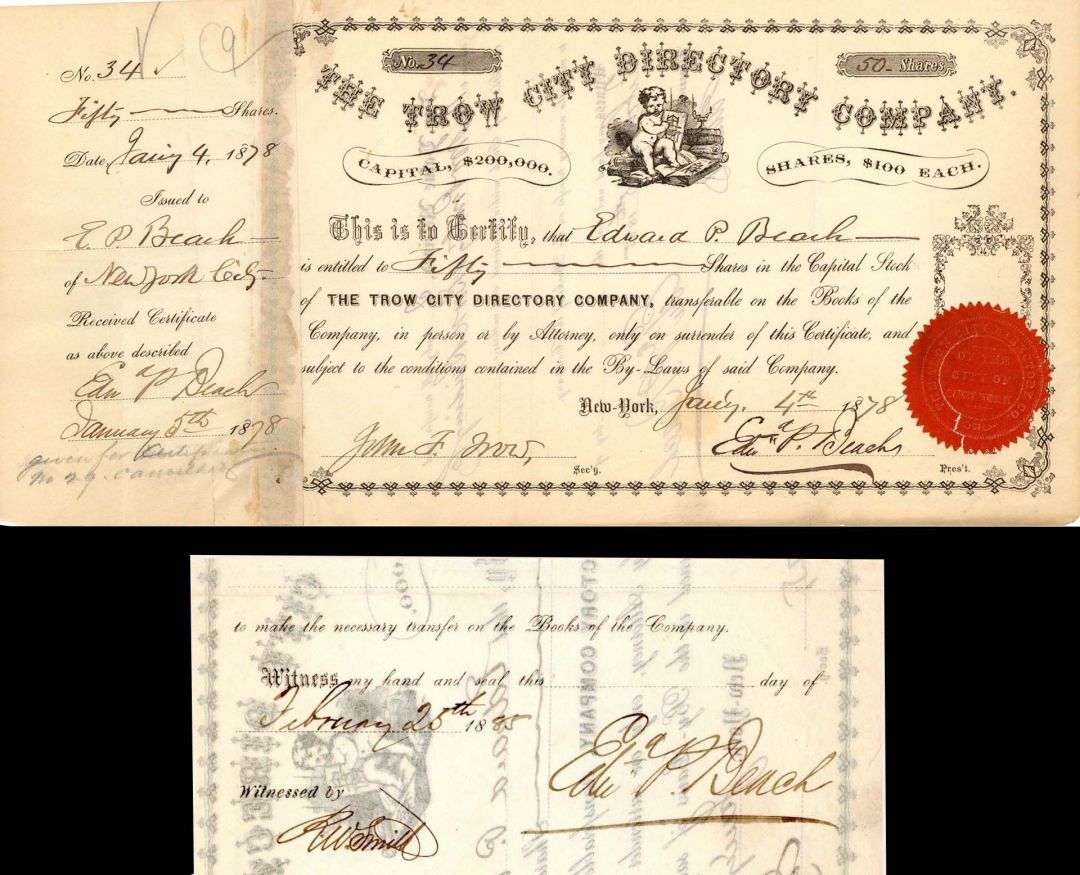 No. 34
Fifty Shares.
Date, Jan'y 4, 1878
Issued to
E. P. Beach
of New York City
Received Certificate
as above described
Edwd P. Beach
January 5th 1878
given for Certificate
No 29. Cancelled
No. 34
50 Shares
THE TROW CITY DIRECTORY COMPANY.
CAPITAL, $200,000.
SHARES, $100 EACH.
This is to Certify, that Edward P. Beach
is entitled to Fifty Shares in the Capital Stock
of THE TROW CITY DIRECTORY COMPANY, transferable on the Books of the
Company, in person or by Attorney, only on surrender of this Certificate, and
subject to the conditions contained in the By-Laws of said Company.
New-York, Jan'y. 4th 1878
John F. Trow,
Sec'y.
Edwd P. Beach
Pres't.
THE TROW CITY DIRECTORY CO.
OF THE
CITY OF
NEW YORK
to make the necessary transfer on the Books of the Company.
Witness my hand and seal this day of
February 25th 1885
Edwd P. Beach
Witnessed by
R.W. Smith